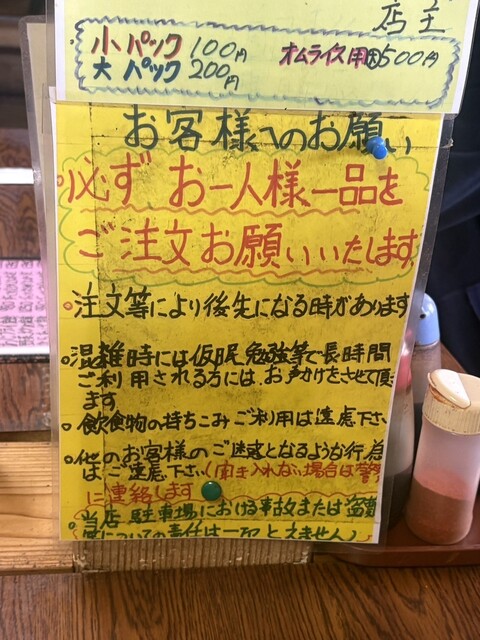 店主
小パック 100円 オムライス用因500円
大パック 200円
お客様へのお願い
必ずお一人様一品を
ご注文お願いいたします
注文等により後先になる時があります
混雑時には仮眠勉強等で長時間
ご利用される方には、お声かけをさせて頂
ます
飲食物の持ちこみご利用は遠慮下さ
他のお客様のご迷惑となるような行為
はご遠慮下さい(聞き入れない場合は警察
に連絡します
当店駐車場における事故または盗難
についての責任は一切とえません)